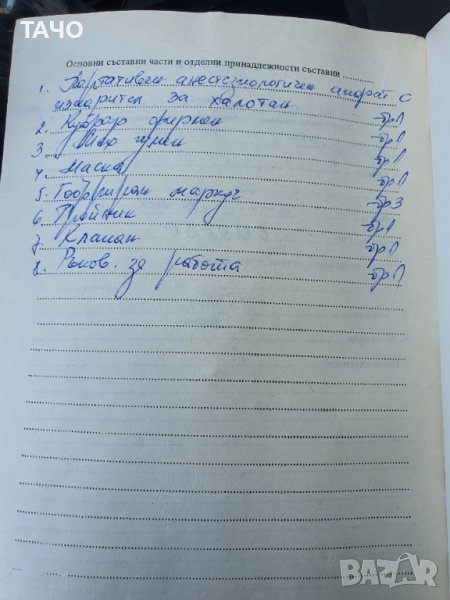 ТАЧО
Основни съставни части и отделни принадлежности съставни
1. Портативен анестезиологичен апарат с
изпарител за халотан
бр 1
2. Куфар фирмен бр 1
3. Мях гумен бр 1
4. Маска бр 1
5. Гофриран маркуч бр 3
6. Тройник бр 1
7. Клапан бр 1
8. Ръков. за работа бр 1
BAZAR